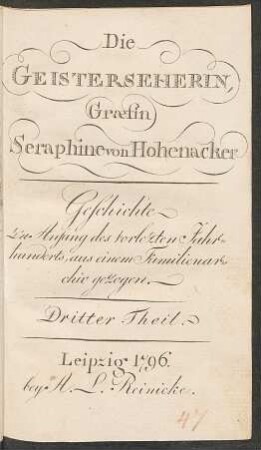 Die
GEISTERSEHERIN,
Græfin
Seraphine von Hohenacker
Geschichte
Zu Anfang des vorletzten Jahr-
hunderts, aus einem Familienar-
chiv gezogen.
Dritter Theil.
Leipzig 1796.
bey A. L. Reinicke.
47